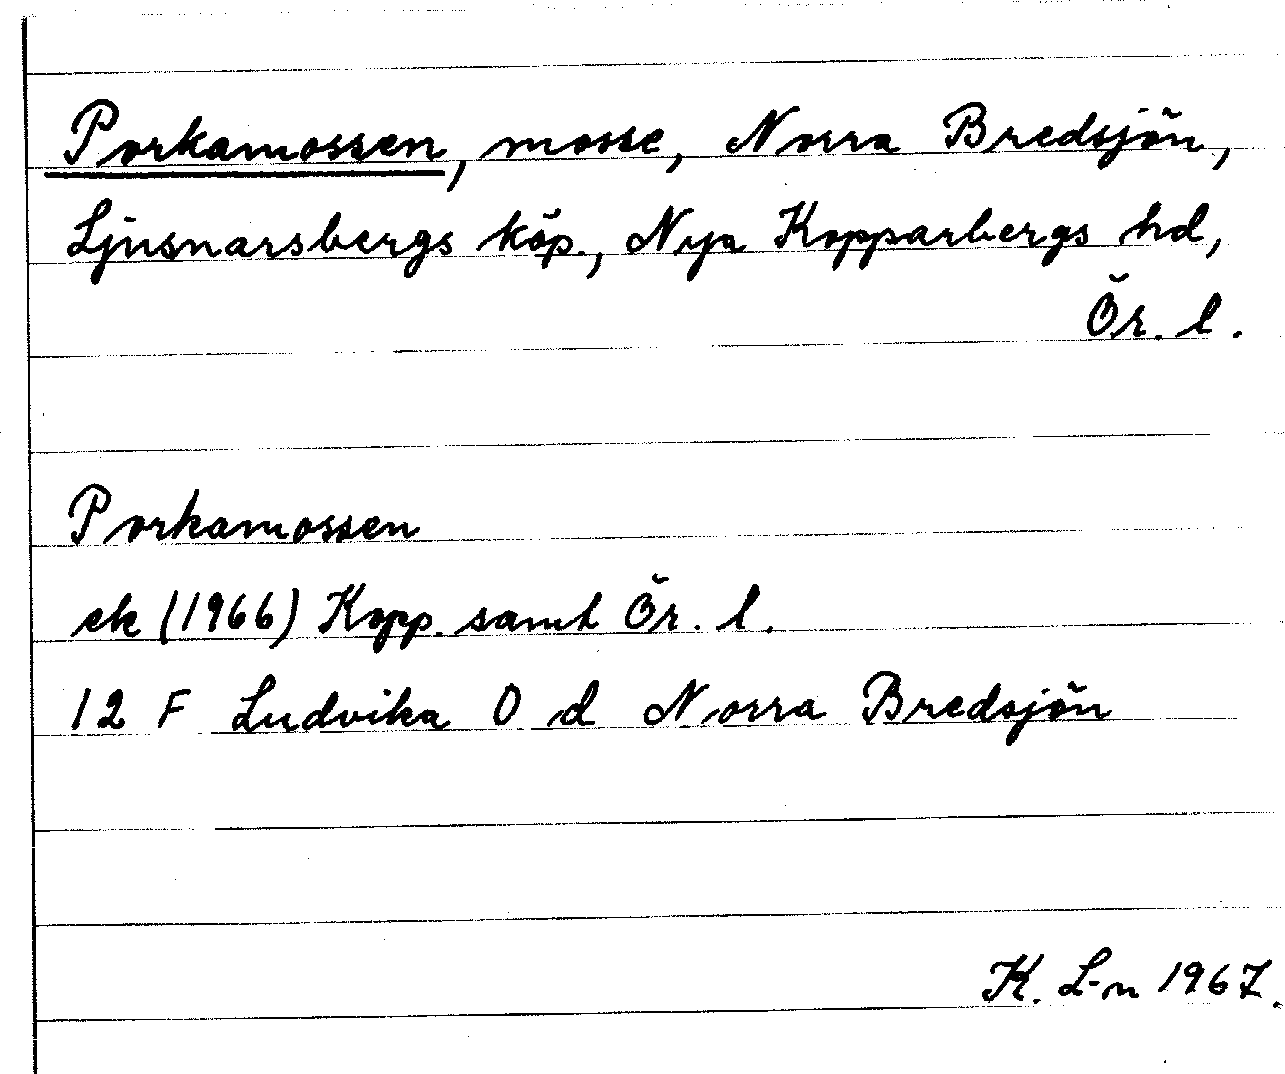 Porkamossen, mosse, Norra Bredsjön,
Ljusnarsbergs köp., Nya Kopparbergs hd,
Ör. l.
Porkamossen
ek (1966) Kopp. samt Ör. l.
12 F Ludvika 0 d Norra Bredsjön
K. L-n 1967.